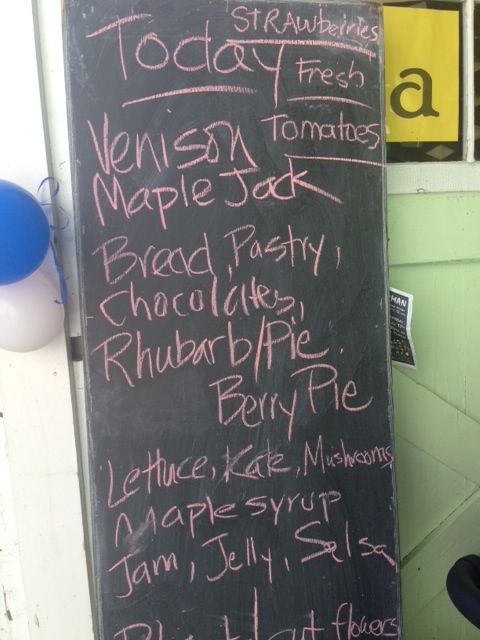 STRAWberries
Today
Fresh
Tomatoes
Venison
Maple Jack
Bread, Pastry,
Chocolates,
Rhubarb/Pie.
Berry Pie
Lettuce, Kale, Mushrooms
Maple syrup
Jam, Jelly, Salsa
cut flowers
a
MAN